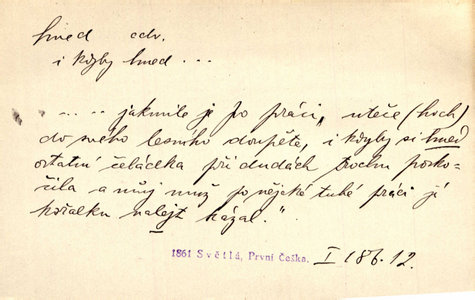 hned adv.
i kdyby hned ...
"..... jakmile je po práci, uteče (hoch)
do svého lesního doupěte, i kdyby si hned
ostatní čeládka při dudách trochu posko-
čila a můj muž po nějaké tuhé práci jí
kořalku nalejt kázal."
1861 Světlá, První Češka. I 186. 12.